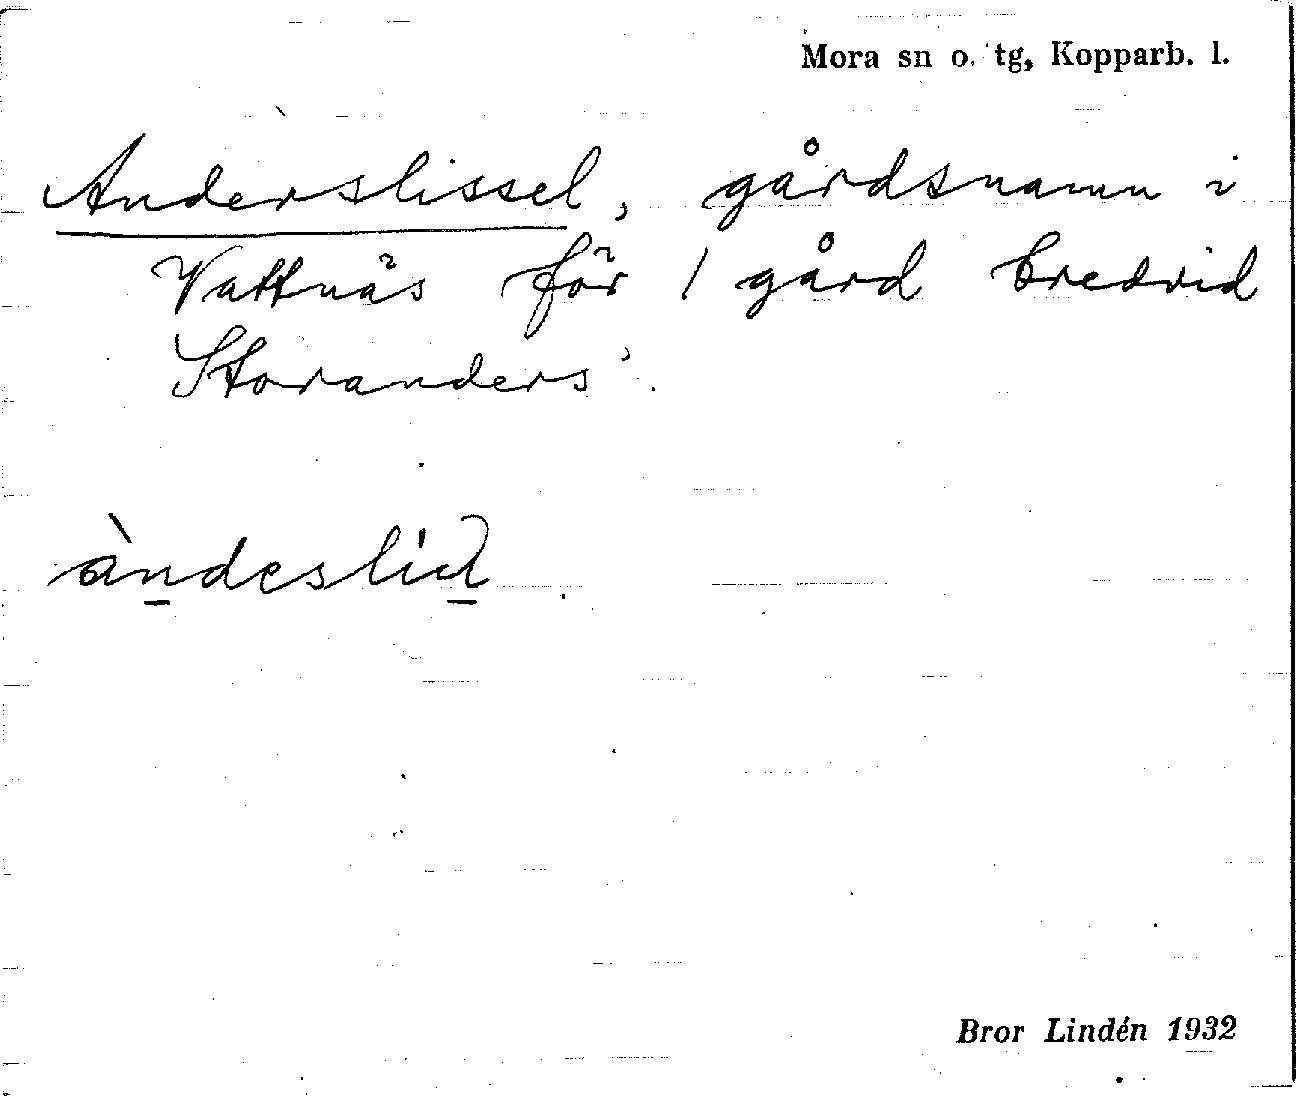 Mora sn o. tg, Kopparb. l.
Anderslissel, gårdsnamn i
Vattnäs för 1 gård bredvid
Storanders'.
àndeslid
Bror Lindén 1932